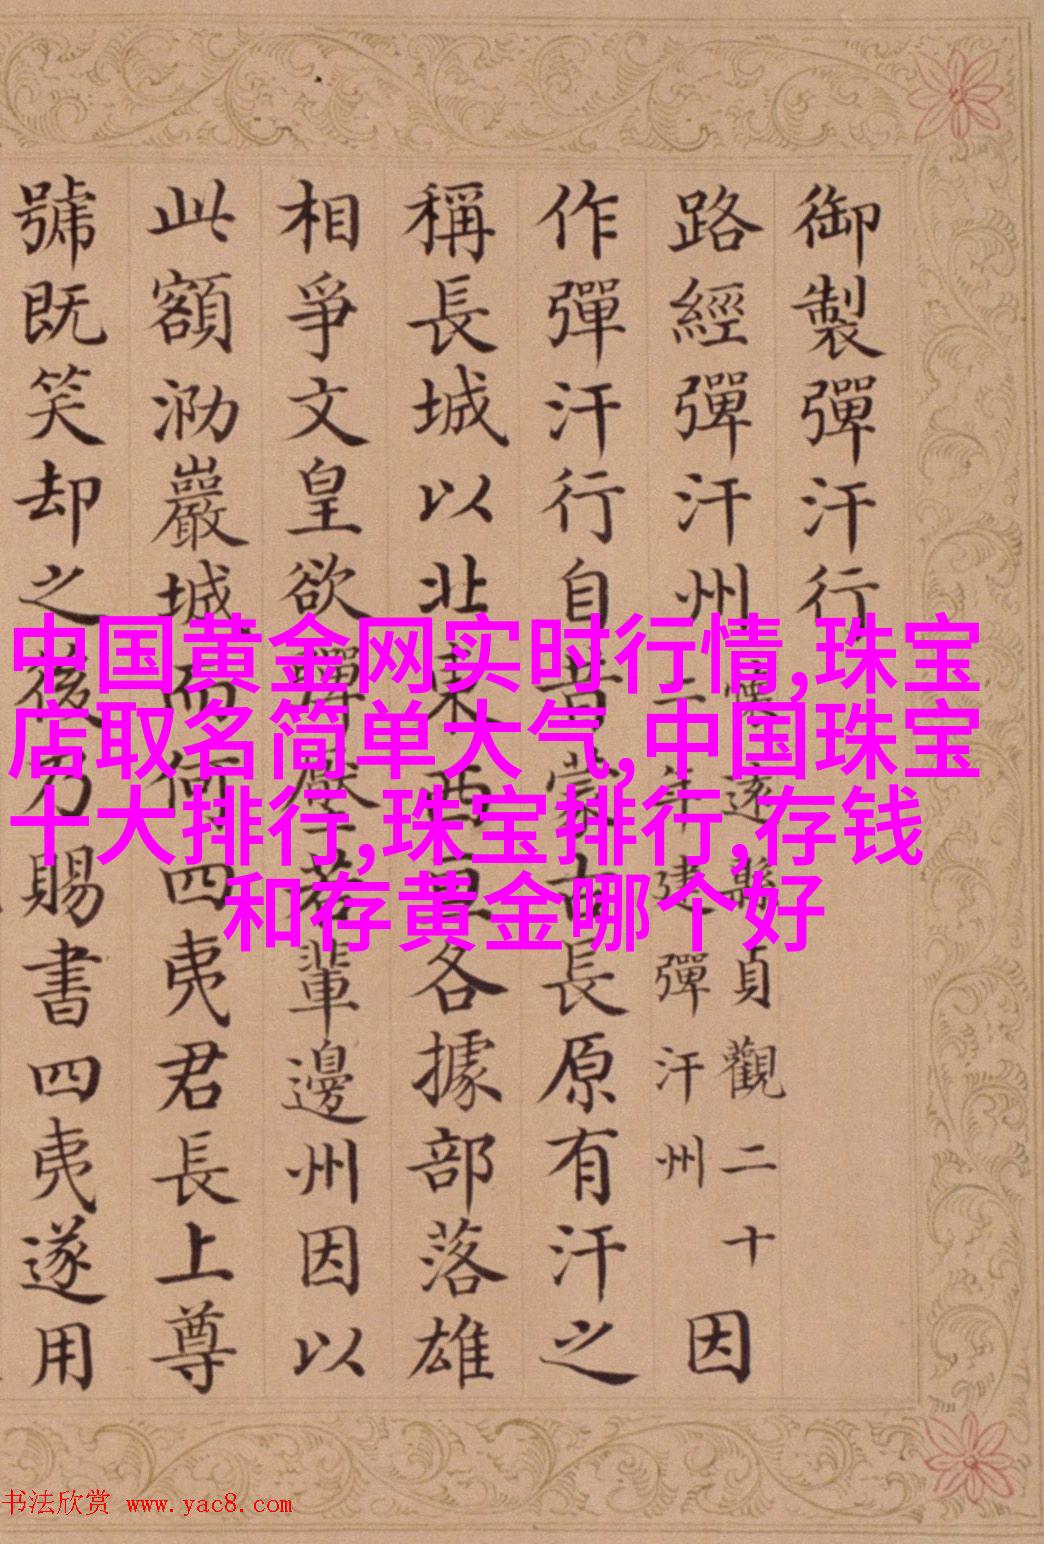 御製彈汗行
路經彈汗州
縣貞觀二十
二年建彈汗州
因
作彈汗行自昔蒙古長原有汗之
稱長城以北東西亘各據部落雄
相爭文皇欲彈壓若輩邊州因以
此額泐巖城而何四夷君長上尊
號既笑却之後乃賜書四夷遂用
中国黄金网实时行情,珠宝
店取名简单大气,中国珠宝
十大排行,珠宝排行,存钱
和存黄金哪个好
书法欣赏 www.yac8.com